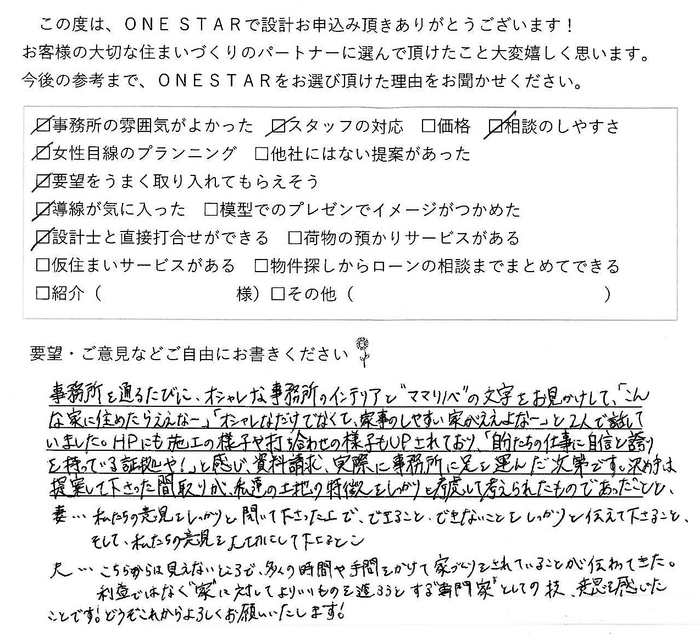 この度は、ＯＮＥ ＳＴＡＲで設計お申込み頂きありがとうございます！
お客様の大切な住まいづくりのパートナーに選んで頂けたこと大変嬉しく思います。
今後の参考まで、ＯＮＥＳＴＡＲをお選び頂けた理由をお聞かせください。
☑事務所の雰囲気がよかった ☑スタッフの対応 □価格 ☑相談のしやすさ
☑女性目線のプランニング □他社にはない提案があった
☑要望をうまく取り入れてもらえそう
☑導線が気に入った □模型でのプレゼンでイメージがつかめた
☑設計士と直接打合せができる □荷物の預かりサービスがある
□仮住まいサービスがある □物件探しからローンの相談までまとめてできる
□紹介（ 様）□その他（ ）
要望・ご意見などご自由にお書きください
事務所を通るたびに、オシャレな事務所のインテリアと"ママリノベ"の文字をお見かけして、「こん
な家に住めたらええなー」「オシャレなだけでなくて、家事のしやすい家がええよなー」と2人で話して
いました。HPにも施工の様子や打ち合わせの様子もUPされており、「自分たちの仕事に自信と誇り
を持っている証拠や！」と感じ、資料請求、実際に事務所に足を運んだ次第です。決め手は
提案して下さった間取りが、私達の土地の特徴をしっかりと考慮して考えられたものであったことと、
妻… 私たちの意見をしっかりと聞いて下さった上で、できること、できないことをしっかりと伝えて下さること、
そして、私たちの意見を大切にして下さるところ
夫… こちらからは見えないところで、多くの時間や手間をかけて家づくりをされていることが伝わってきた。
利益ではなく"家"に対してよりいいものを造ろうとする"専門家"としての技、意思を感じた
ことです！どうぞこれからよろしくお願いいたします！